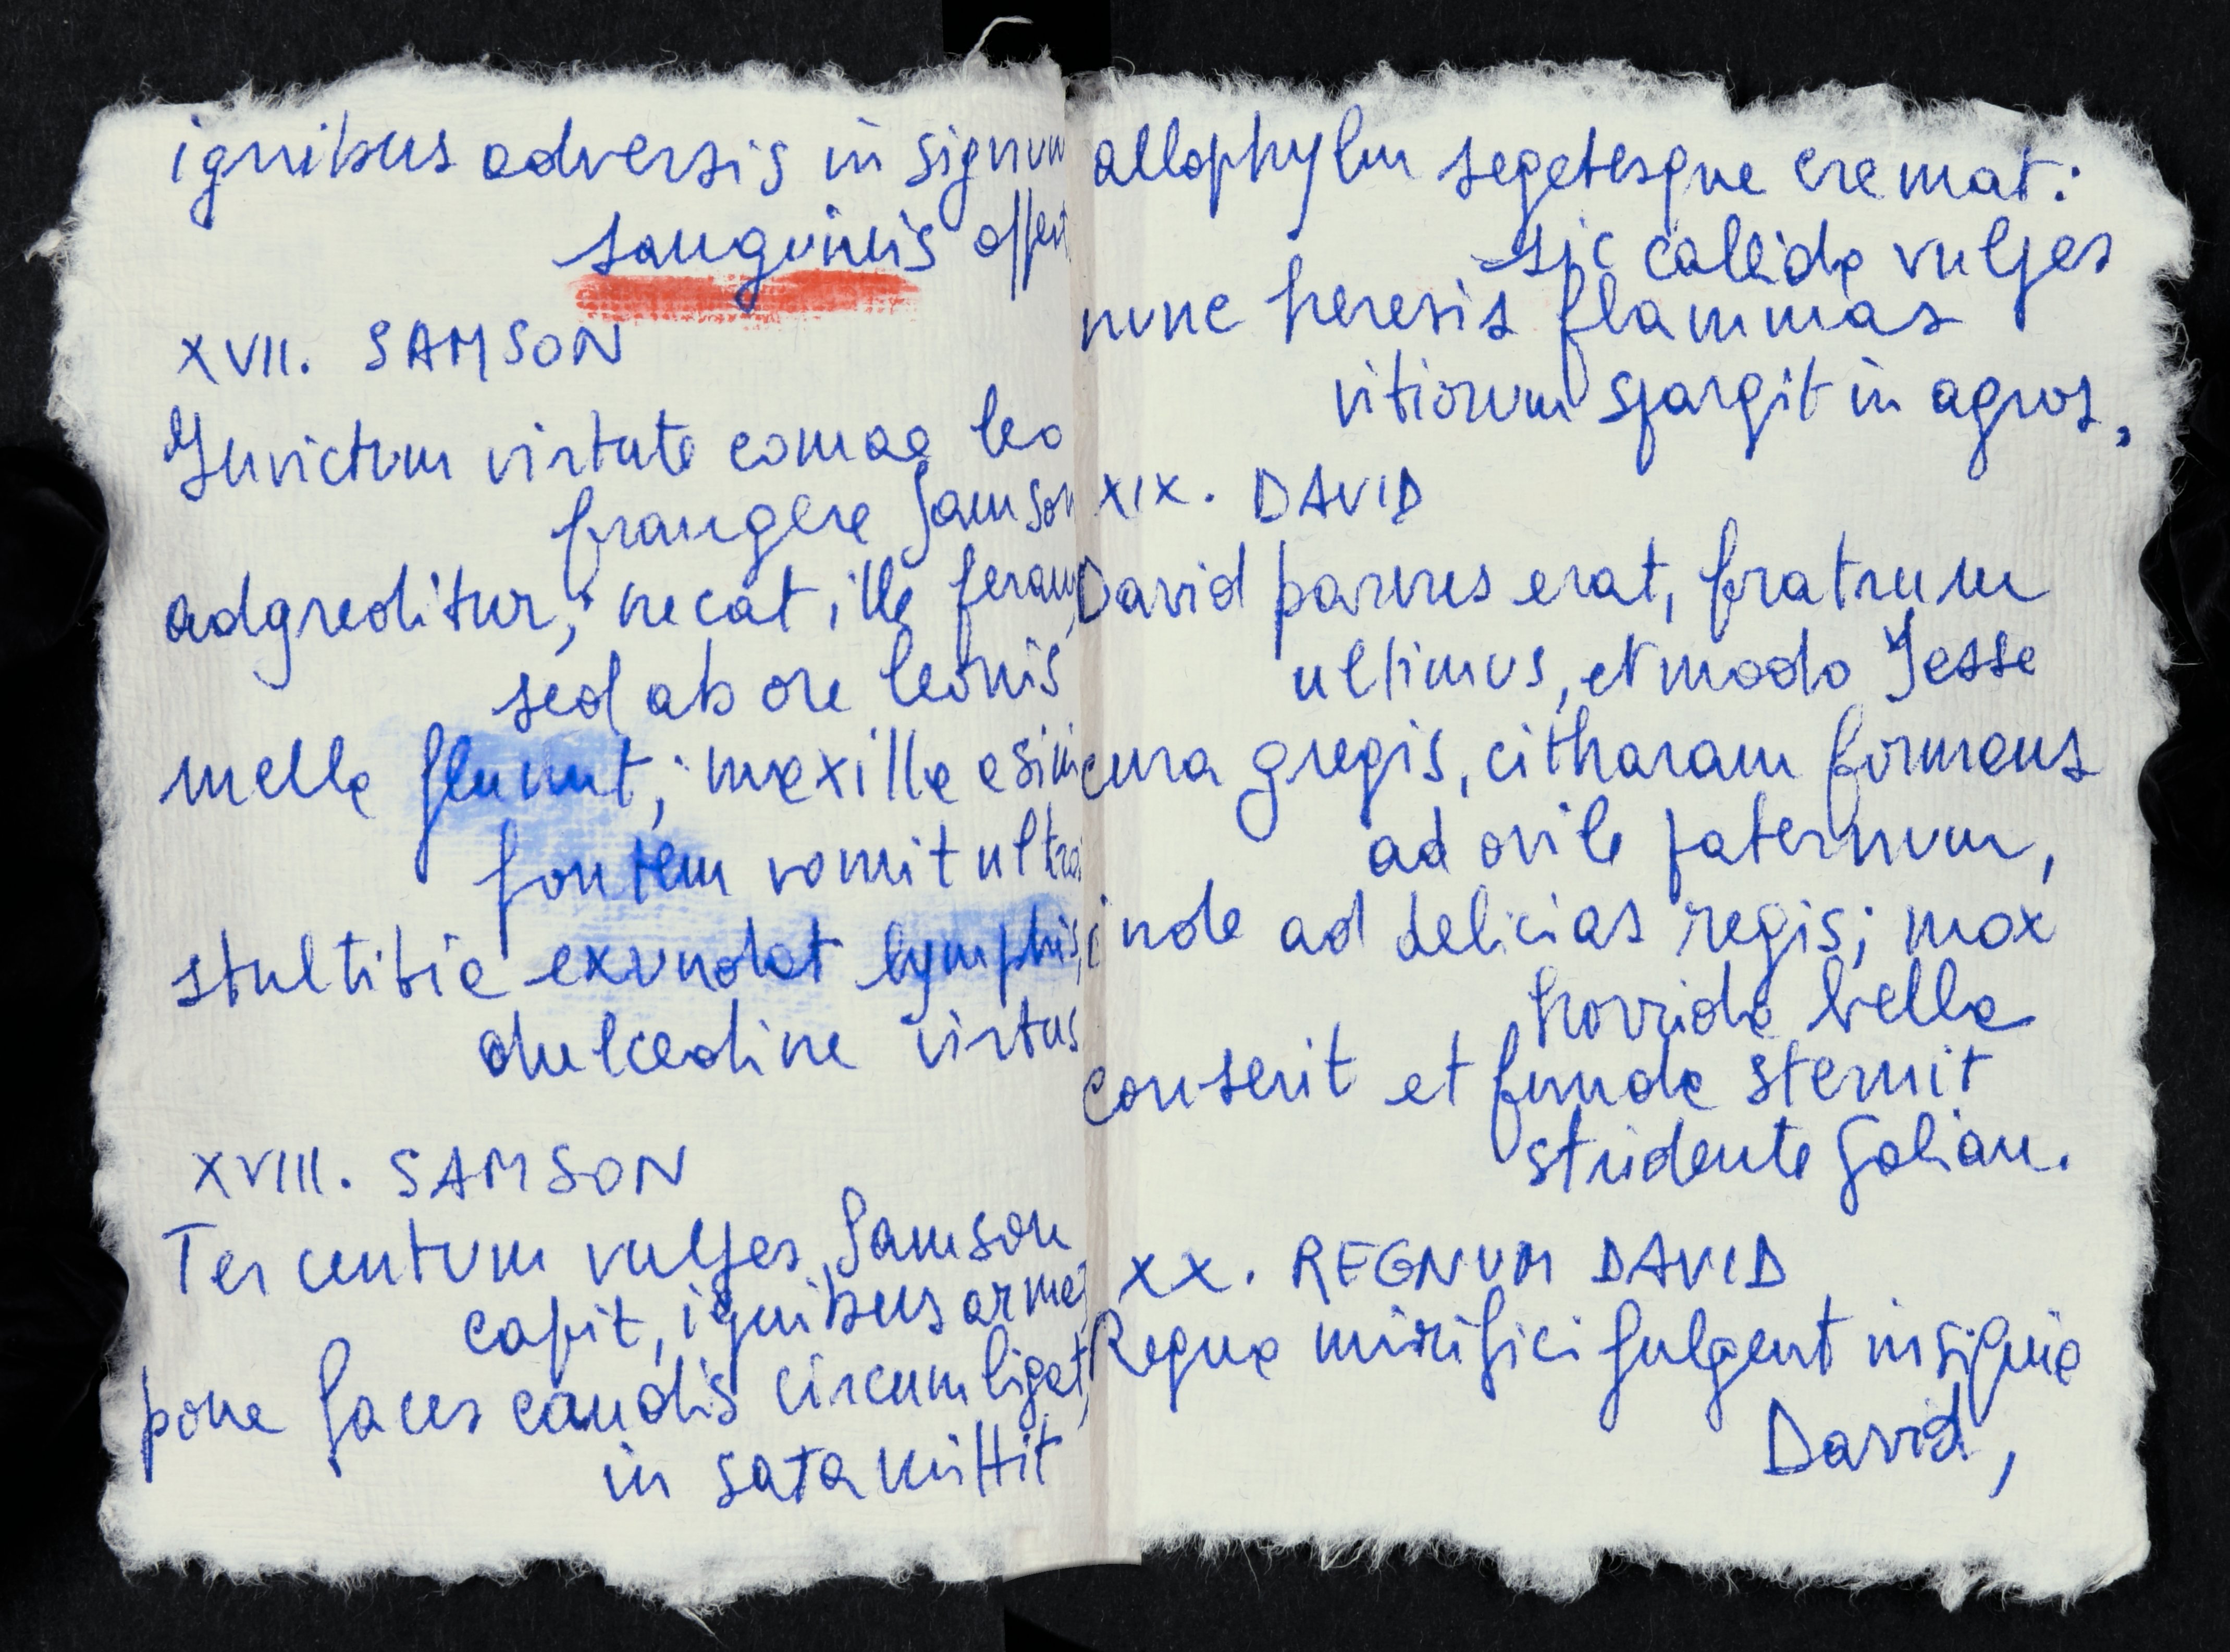 ignibus adversis in signum
sanguinis offert
XVII. SAMSON
Invictum virtute comae leo
frangere Samson
adgreditur; necat ille feram,
sed ab ore leonis
mella fluunt; maxilla asini
fontem vomit ultro:
stultitia exundat lymphis,
dulcedine virtus
XVIII. SAMSON
Ter centum vulpes Samson
capit, ignibus armat,
pone faces caudis circumligat,
in sata mittit
allophylum segetesque cremat:
sic callida vulpes
nunc heresis flammas
vitiorum spargit in agros.
XIX. DAVID
David parvus erat, fratrum
ultimus, et modo Jesse
cura gregis, citharam formans
ad ovile paternum,
inde ad delicias regis; mox
horrida bella
conserit et funda sternit
stridente Golian.
XX. REGNUM DAVID
Regna mirifici fulgent insignia
David,